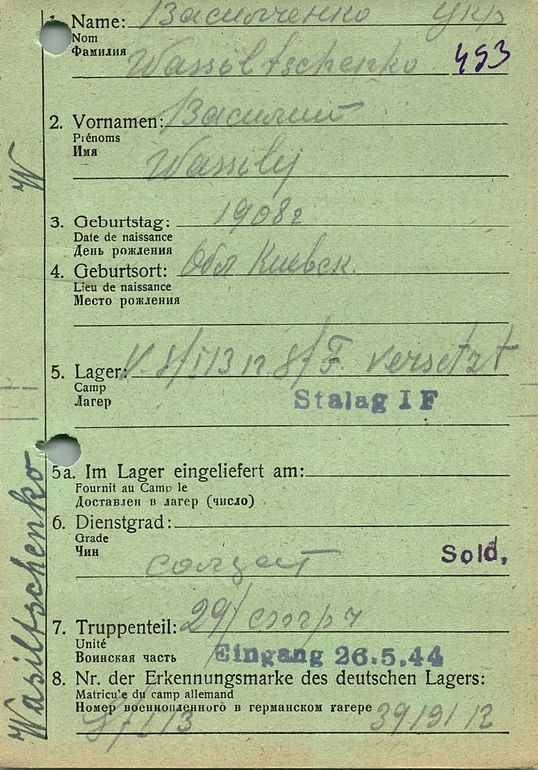 1. Name: Василченко укр
Nom
Фамилия
Wassiltschenko 493
2. Vornamen: Василий
Prénoms
Имя
Wassilij
W
3. Geburtstag: 1908г
Date de naissance
День рождения
4. Geburtsort: Обл Киевск.
Lieu de naissance
Место рождения
5. Lager: versetzt
Camp
Лагер
Stalag I F
5a. Im Lager eingeliefert am:
Fournit au Camp le
Доставлен в лагер (число)
6. Dienstgrad:
Grade
Чин
солдат Sold,
7. Truppenteil: 29
Unité
Воинская часть
Eingang 26.5.44
8. Nr. der Erkennungsmarke des deutschen Lagers:
Matricule du camp allemand
Номер военнопленного в германском лагере
Wasiltschenko